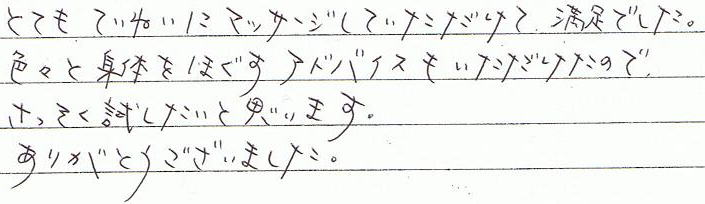 とても ていねいに マッサージしていただけて、満足でした。
色々と身体をほぐすアドバイスもいただけたので、
さっそく試したいと思います。
ありがとうございました。